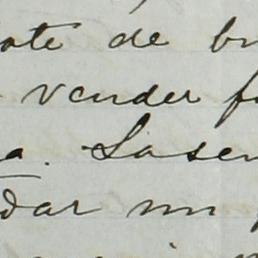 ote de bu
vender f
a. Lasen
dar un